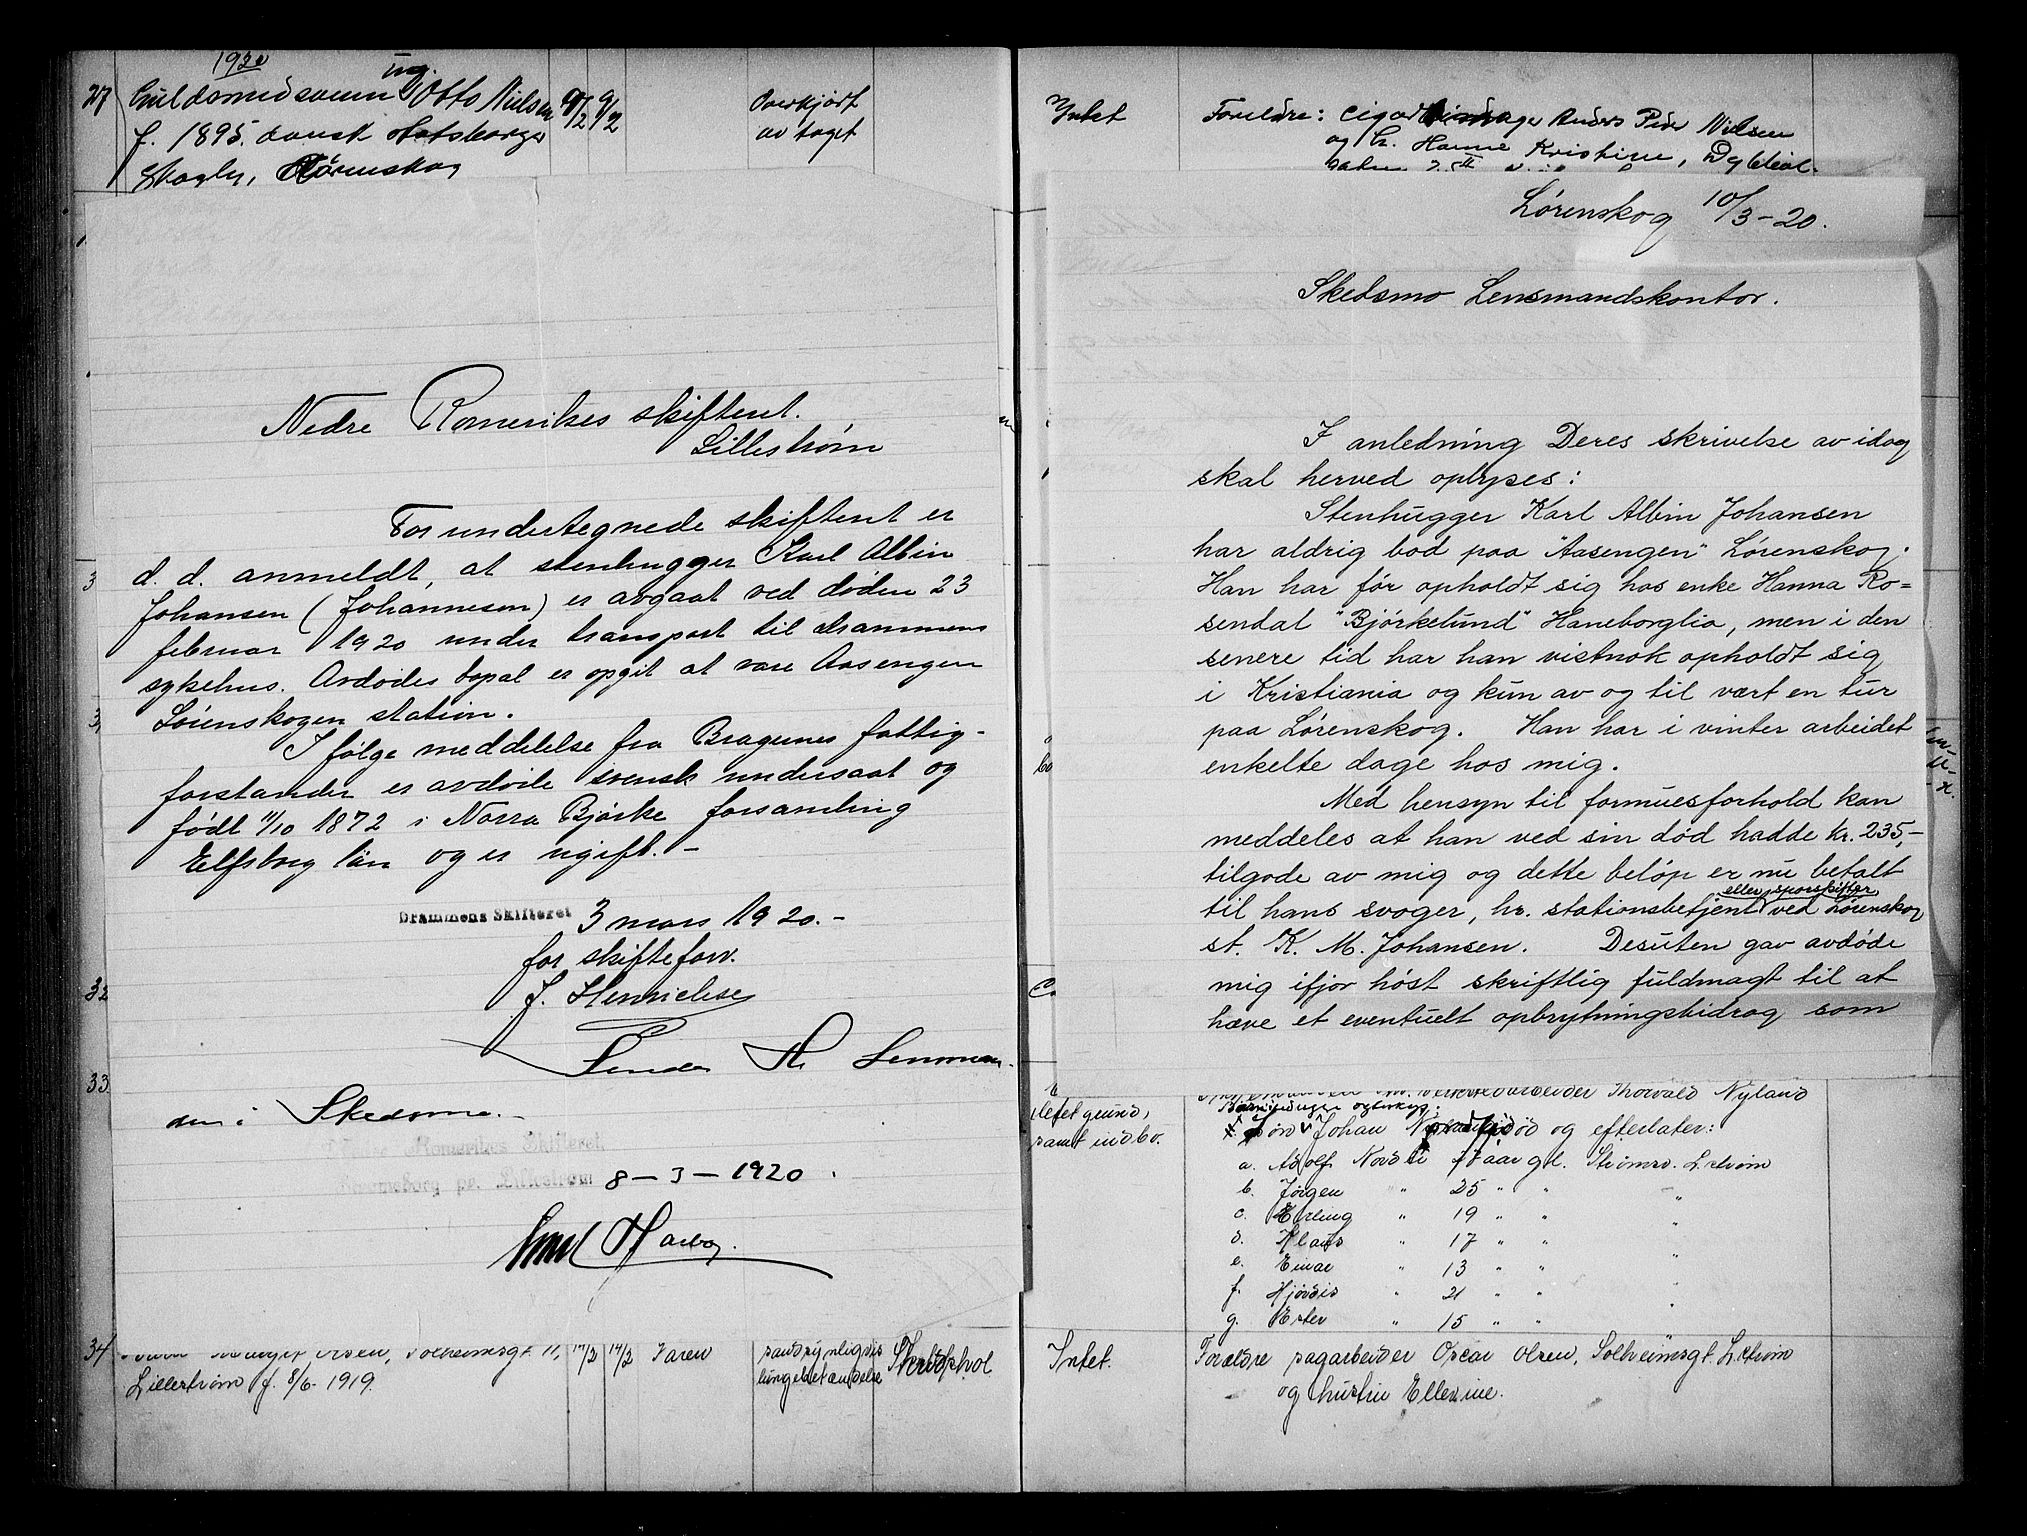 1920
27 Guldsmedsvenn ug. Otto Nielsen 9/2 9/2 Overkjørt Intet
f. 1895. dansk statsborger av toget
Skogly, Lørenskog
Foreldre: Anders Peder Nielsen
og h. Hanne Kristine, Dybbøl
Nedre Romerikes skifteret.
Lillestrøm
For undertegnede skifteret er
d. d. anmeldt, at stenhugger Karl Albin
Johansen (Johannesen) er avgaat ved døden 23
februar 1920 under transport til Drammens
sykehus. Avdødes bopæl er opgit at være Aasengen
Lørenskogen station.
Ifølge meddelelse fra Bragernes fattig-
forstander er avdøde svensk undersaat og
født 11/10 1872 i Norra Bjørke forsamling
Elfsborg län og er ugift. -
Drammens Skifteret 3 mars 1920. -
for skifteforv.
J. Henrichsen
Sendes Hr Lensman-
den i Skedsmo. -
Nedre Romerikes Skifteret
pr. Lillestrøm 8 - 3 - 1920.
Lørenskog 10/3 - 20.
Skedsmo Lensmandskontor.
I anledning Deres skrivelse av idag
skal herved oplyses:
Stenhugger Karl Albin Johansen
har aldrig bod paa "Aasengen" Lørenskog.
Han har før opholdt sig hos enke Hanna Ro=
sendal "Bjørkelund" Haneborglia, men i den
senere tid har han vistnok opholdt sig
i Kristiania og kun av og til vært en tur
paa Lørenskog. Han har i vinter arbeidet
enkelte dage hos mig.
Med hensyn til formuesforhold kan
meddeles at han ved sin død hadde kr. 235,-
tilgode av mig og dette beløp er nu betalt
eller sporskifter
til hans svoger, hr. stationsbetjent ved Lørenskog
st. K. M. Johansen. Desuten gav avdøde
mig ifjor høst skriftlig fuldmagt til at
hæve et eventuelt opbrytningsbidrag som
3
3
32
33
Thorvald Nyland
grund,
samt indbo.
Johan død og efterlater:
a. Adolf Nordli aar gl. Strømsv. L.strøm
b. Jørgen " 25 " " "
c. Erling " 19 " " "
d. Klaus " 17 " " "
e. Einar " 13 " " "
f. Hjørdis " 21 " " "
g. Ester " 15 " "
34 Olsen, Solheimsgt. 11, 14/2 14/2 Faren sandsynligvis Intet.
Lillestrøm f. 8/6 1919. lungebetændelse
Forældre sagarbeider Oscar Olsen, Solheimsgt. L.strøm
og hustru Ellevine.